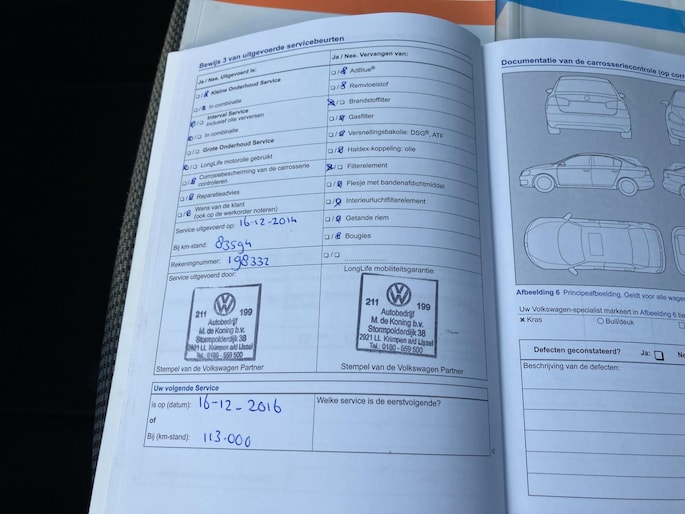 Bewijs 3 van uitgevoerde servicebeurten
Ja / Nee. Uitgevoerd is:
Kleine Onderhoud Service
In combinatie
Interval Service
inclusief olie verversen
In combinatie
Grote Onderhoud Service
LongLife motorolie gebruikt
Corrosiebescherming van de carrosserie
controleren
Reparatieadvies
Wens van de klant
(ook op de werkorder noteren)
Service uitgevoerd op: 16-12-2014
Bij km-stand: 83594
Rekeningnummer: 198332
Service uitgevoerd door:
211 199
Autobedrijf
M. de Koning b.v.
Stormpolderdijk 38
2921 LL Krimpen a/d IJssel
Tel.: 0180 - 559 500
Stempel van de Volkswagen Partner
Ja / Nee. Vervangen van:
AdBlue®
Remvloeistof
Brandstoffilter
Gasfilter
Versnellingsbakolie: DSG®, ATF
Haldex-koppeling: olie
Filterelement
Flesje met bandenafdichtmiddel
Interieurluchtfilterelement
Getande riem
Bougies
LongLife mobiliteitsgarantie:
211 199
Autobedrijf
M. de Koning b.v.
Stormpolderdijk 38
2921 LL Krimpen a/d IJssel
Tel.: 0180 - 559 500
Stempel van de Volkswagen Partner
Uw volgende Service
is op (datum): 16-12-2016
of
Bij (km-stand): 113.000
Welke service is de eerstvolgende?
Documentatie van de carrosseriecontrole (op
Afbeelding 6 Principeafbeelding. Geldt voor alle
Uw Volkswagen-specialist markeert in Afbeelding 6
x Kras
O Buil/deuk
Defecten geconstateerd? Ja:
Beschrijving van de defecten: